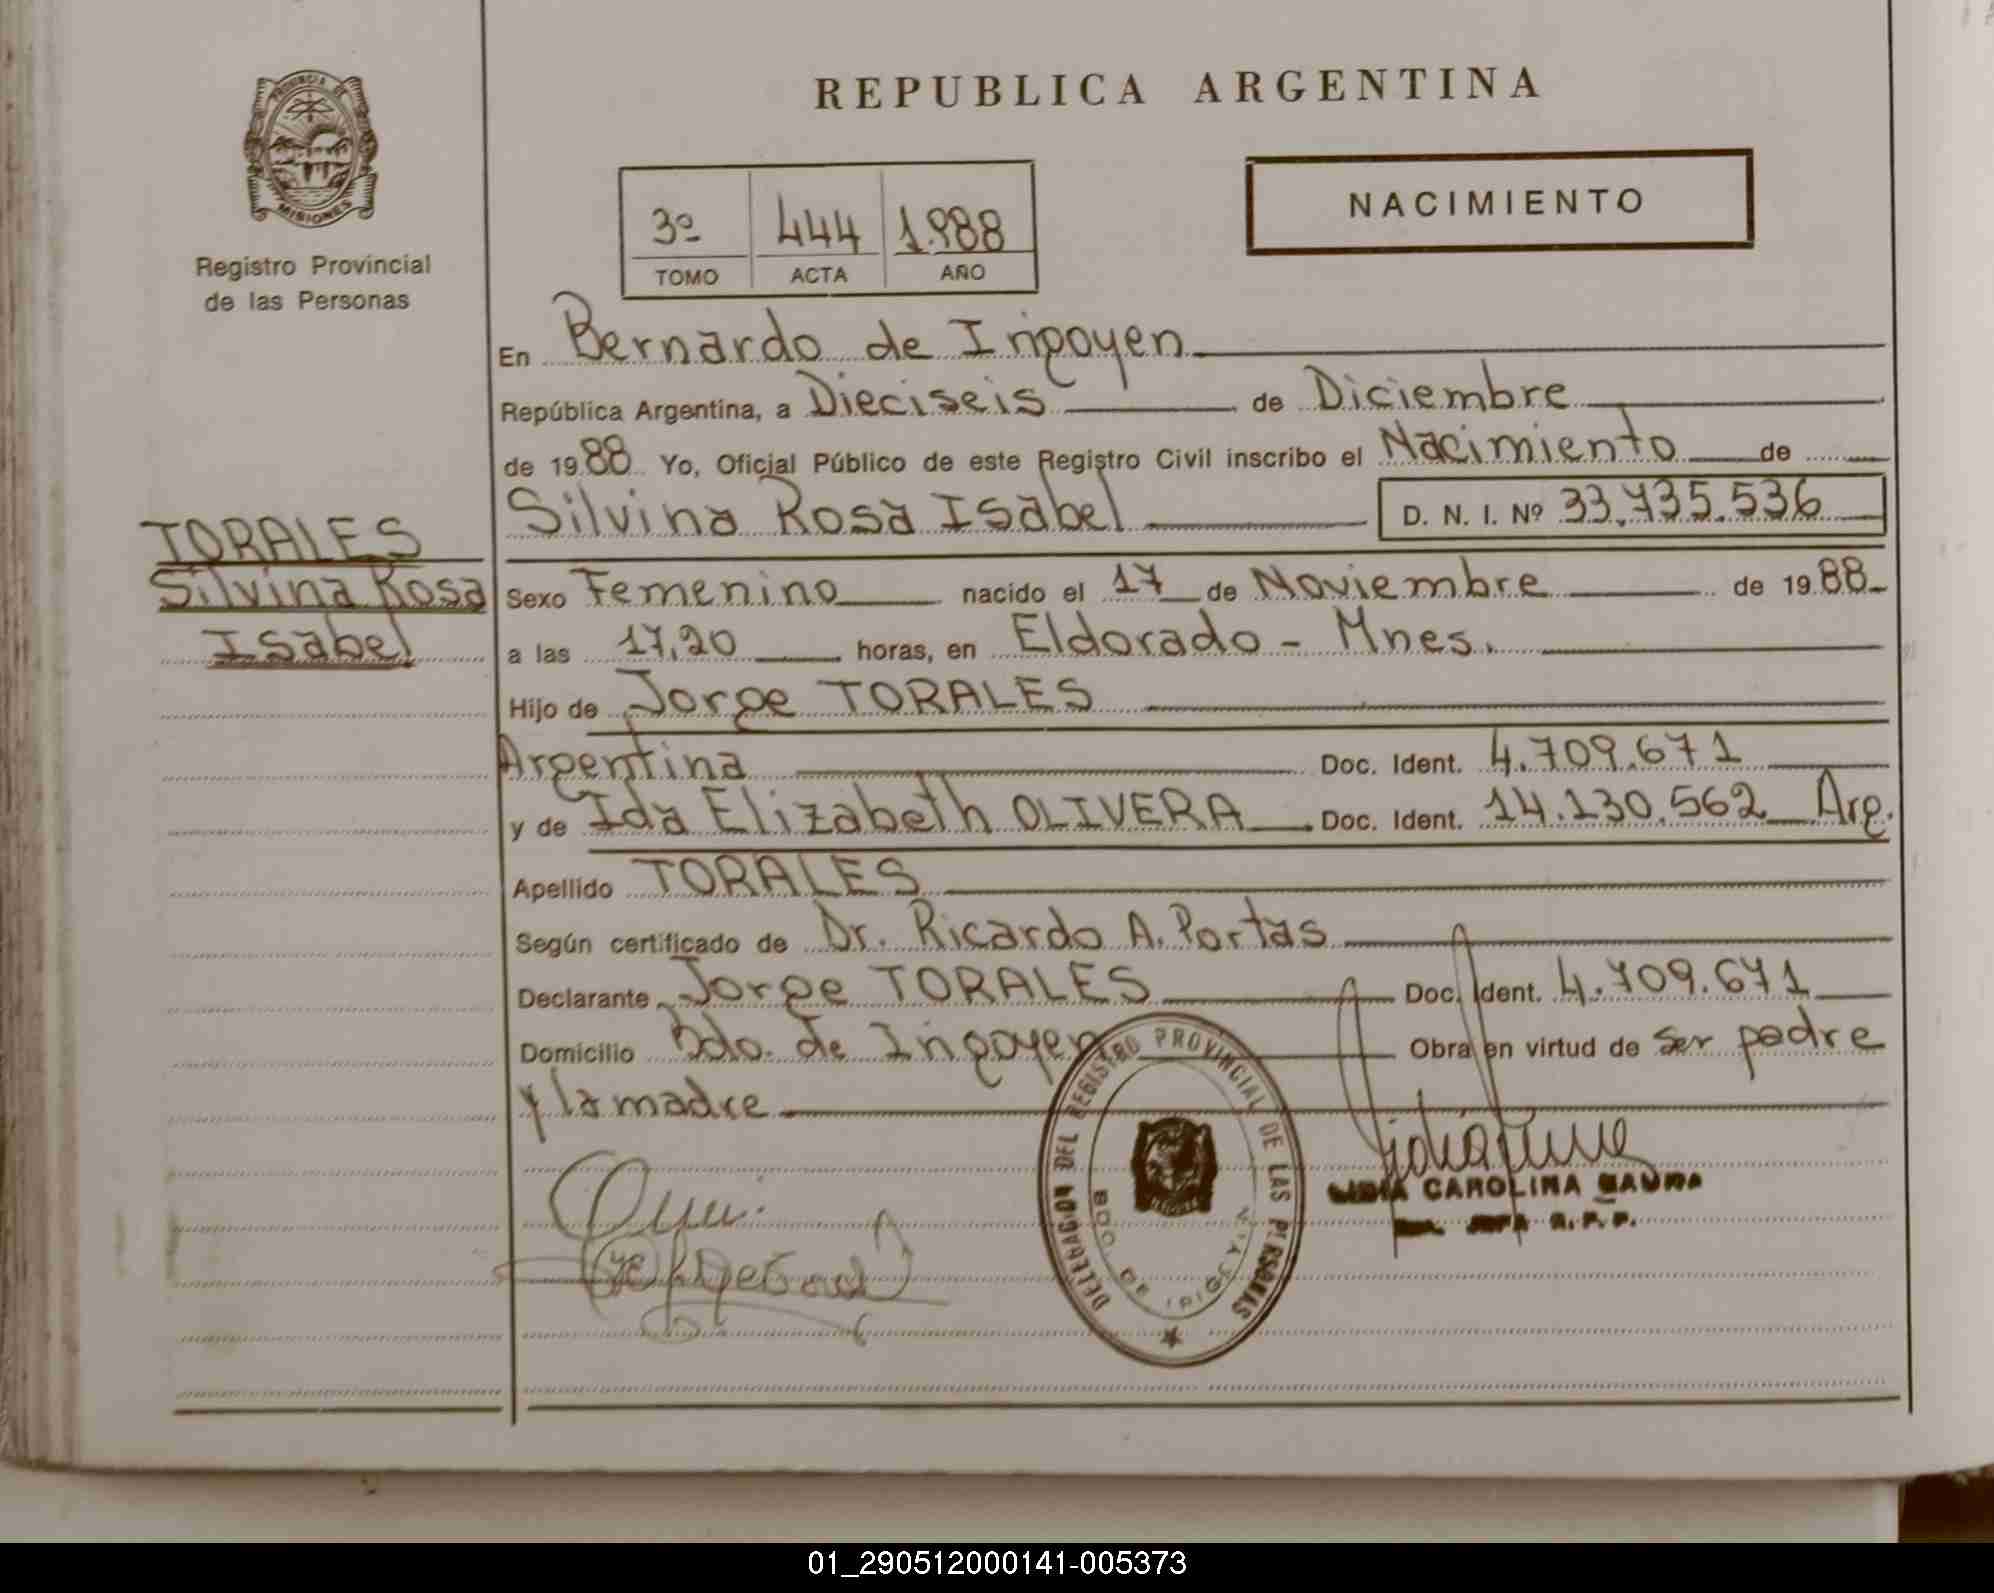 REPUBLICA ARGENTINA
PROVINCIA DE
MISIONES
Registro Provincial
de las Personas
NACIMIENTO
3º 444 1.988
TOMO ACTA AÑO
En Bernardo de Irigoyen
República Argentina, a Dieciseis de Diciembre
de 1988 Yo, Oficial Público de este Registro Civil inscribo el Nacimiento de
Silvina Rosa Isabel D. N. I. Nº 33.735.536
TORALES
Silvina Rosa
Isabel
Sexo Femenino nacido el 17 de Noviembre de 1988
a las 17,20 horas, en Eldorado - Mnes.
Hijo de Jorge TORALES
Argentina Doc. Ident. 4.709.671
y de Ida Elizabeth OLIVERA Doc. Ident. 14.130.562 Arg.
Apellido TORALES
Según certificado de Dr. Ricardo A. Portas
Declarante Jorge TORALES Doc. Ident. 4.709.671
Domicilio Bdo. de Irigoyen Obra en virtud de ser padre
y la madre
DELEGACION DEL REGISTRO PROVINCIAL DE LAS PERSONAS
BDO. DE IRIGOYEN
LIDIA CAROLINA
JEFA R.P.P.
01_290512000141-005373